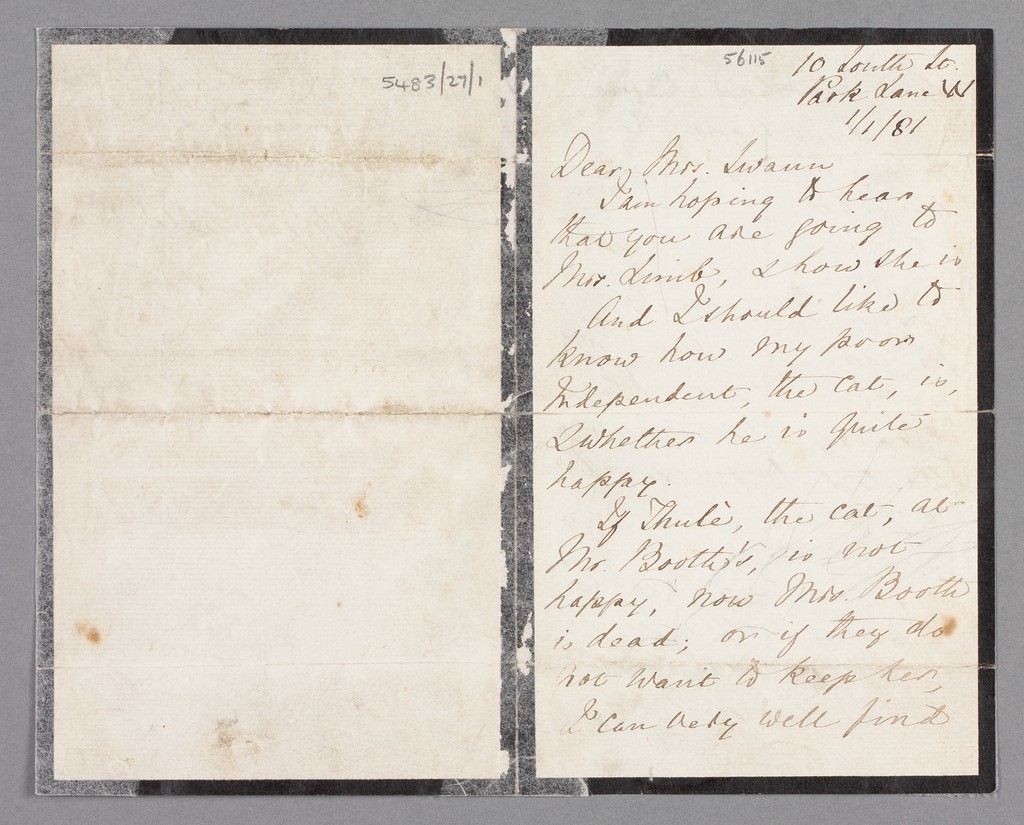 5483/27/1
56115
10 South St.
Park Lane W
1/1/81
Dear Mrs. Swann
I am hoping to hear
that you are going to
Mrs. Limb, & how she is
And I should like to
know how my poor
Independent, the cat, is,
& whether he is quite
happy.
If Thulè, the cat, at
Mr. Booth's, is not
happy, now Mrs. Booth
is dead; or if they do
not want to keep her,
I can very well find